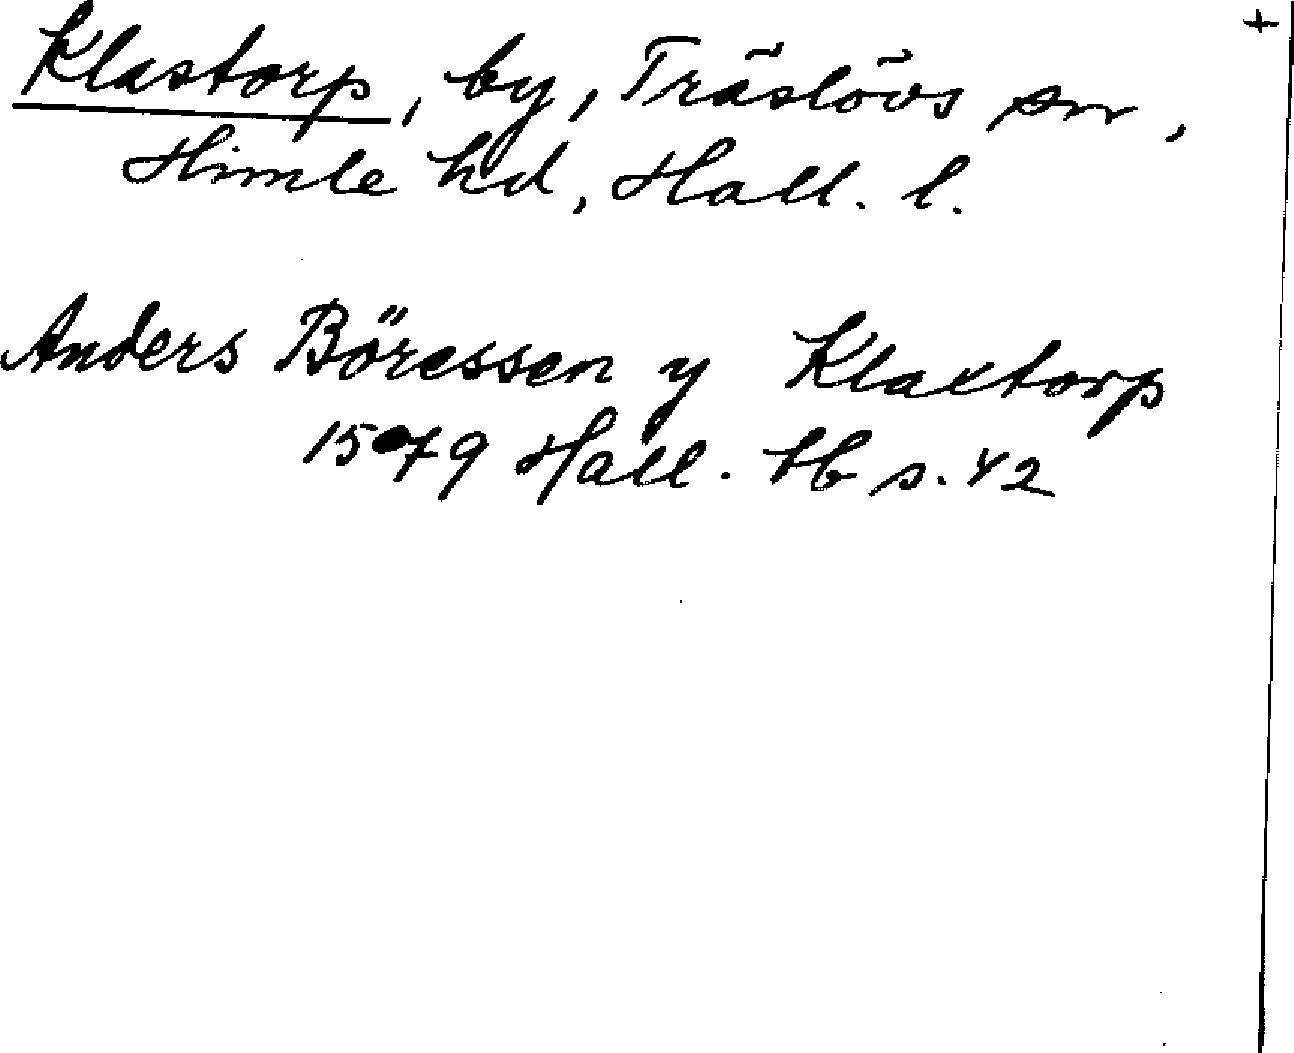 +
Klastorp, by, Träslövs sn,
Himle hd, Hall. l.
Anders Böressen y Klaxtorp
1579 Hall. tb s. 42